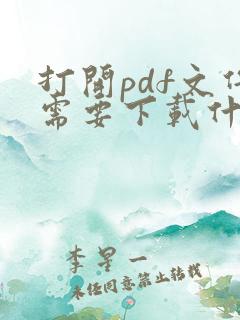 打開pdf文件
需要下載什
李星一
未經同意禁止轉載